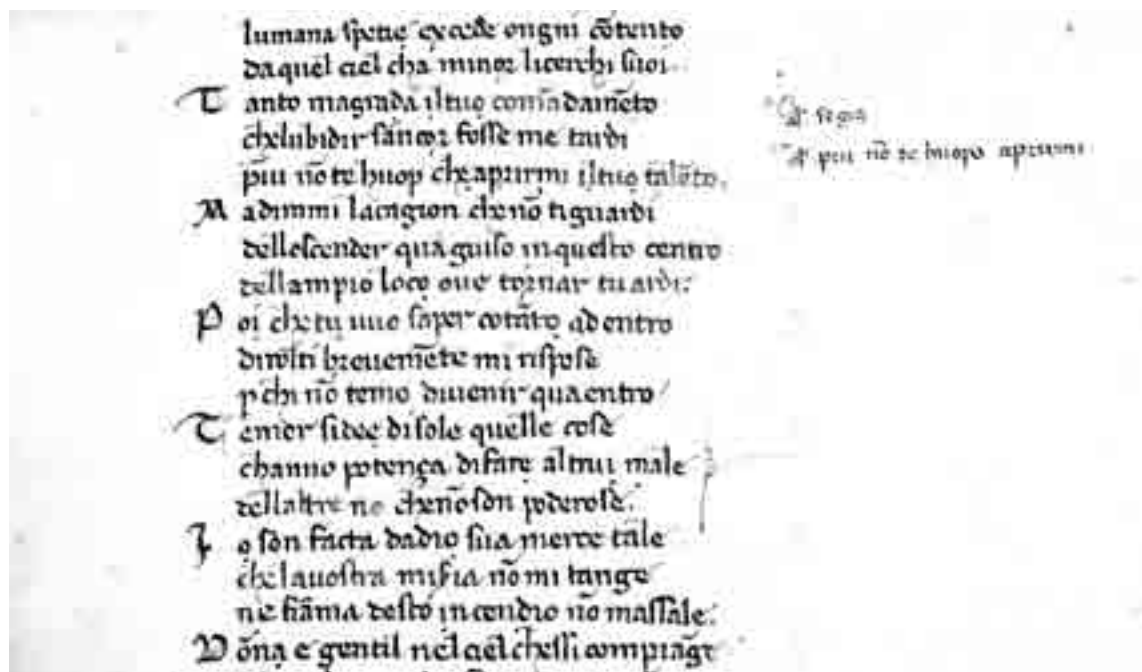 lumana spetie excede ongni cōtento
da quel ciel cha minor li cerchi suoi.
Tanto magrada il tuo comādamēto
chelubidir sancor fosse me tardi
piu nō te huop che aprirmi il tuo talēto.
Ma dimmi la cagion che nō ti guardi
dello scender qua guiso in questo centro
dellampio loco oue tornar tu ardi.
Poi che tu uuo saper cotāto adentro
dirolti breuemēte mi rispose
pchi nō temo di uenir qua entro
Temer si dee di sole quelle cose
channo potença di fare altrui male
dellaltre no che nō son poderose.
Io son facta da dio sua merce tale
che la uostra misia nō mi tange
ne fiāma desto incendio nō massale.
Dōna e gentil nel ciel chessi compiāge
piu nō te huopo aprirmi